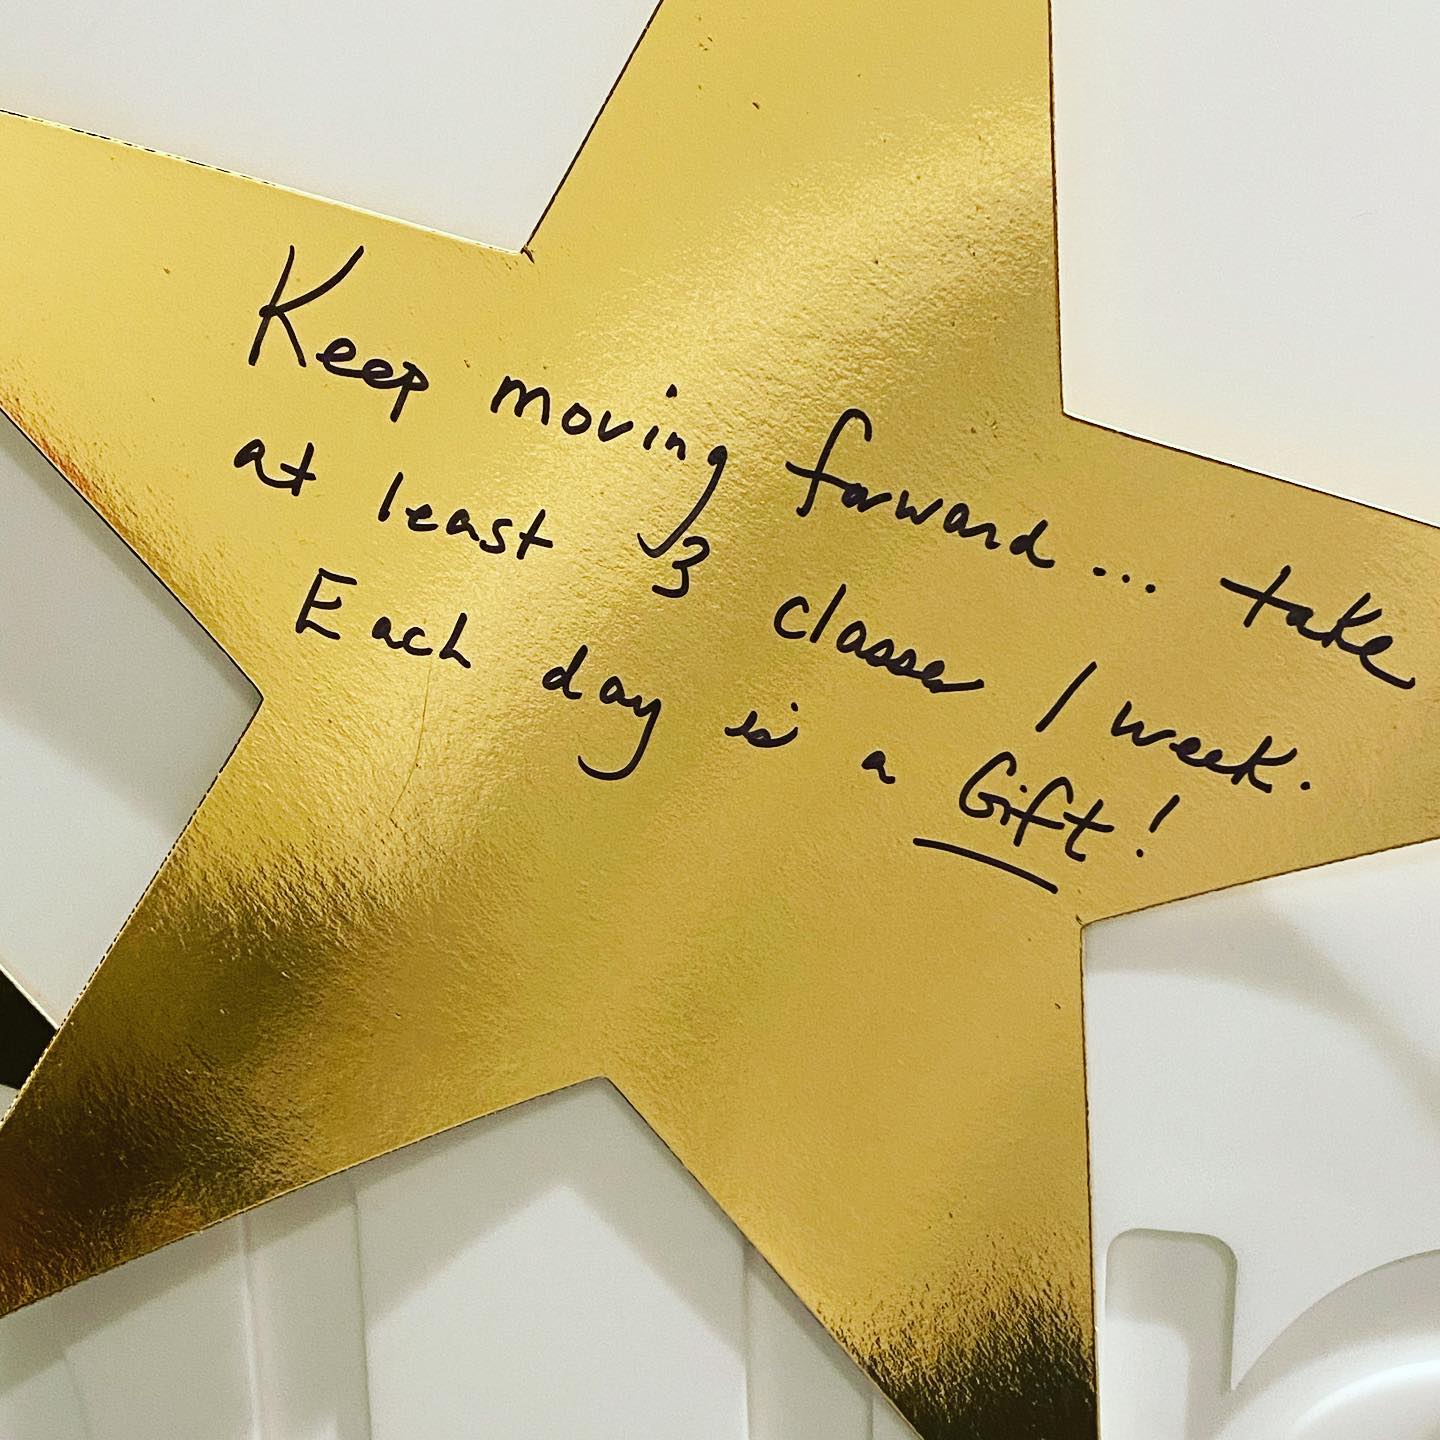 Keep moving forward... take
at least 3 classes / week.
Each day is a Gift!